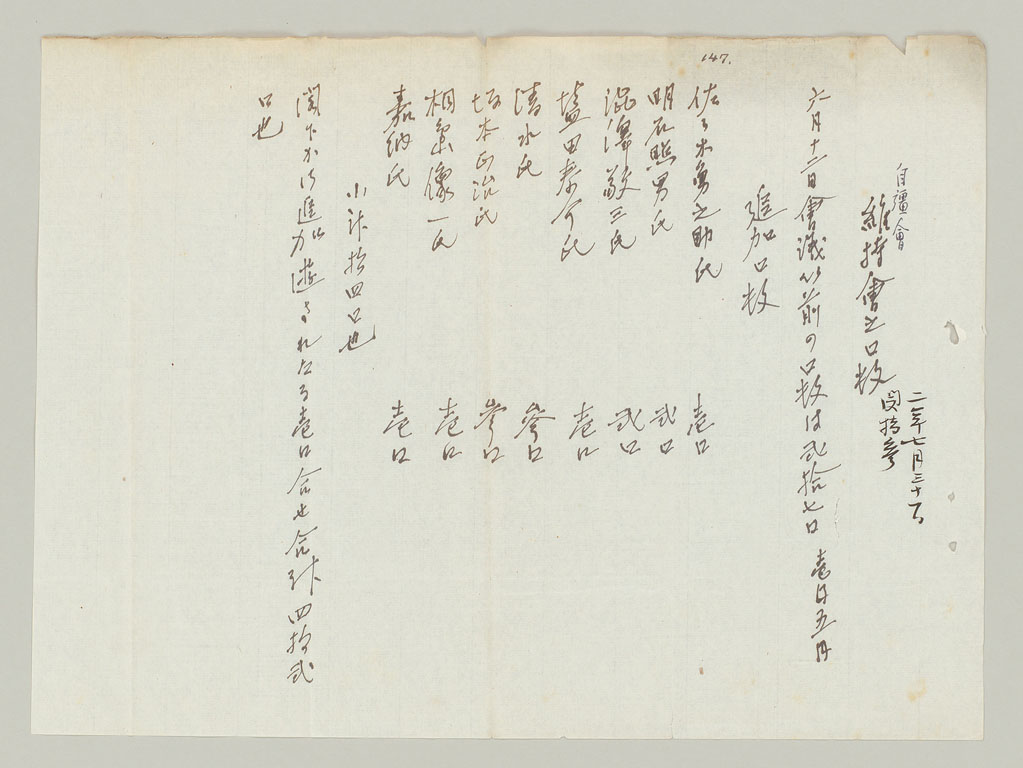 147.
自彊會
維持會之口数
二年七月三十日
関持参
六月十二日會議以前の口数は弐拾七口 壱口五円
追加口数
佐々木勇之助氏 壱口
明石照男氏 弐口
渋澤敬三氏 弐口
塩田泰介氏 壱口
清水氏 参口
坂本正治氏 参口
相田像一氏 壱口
嘉納氏 壱口
小計拾四口也
閣下か御進力遊されたる壱口合せ合計四拾弐
口也